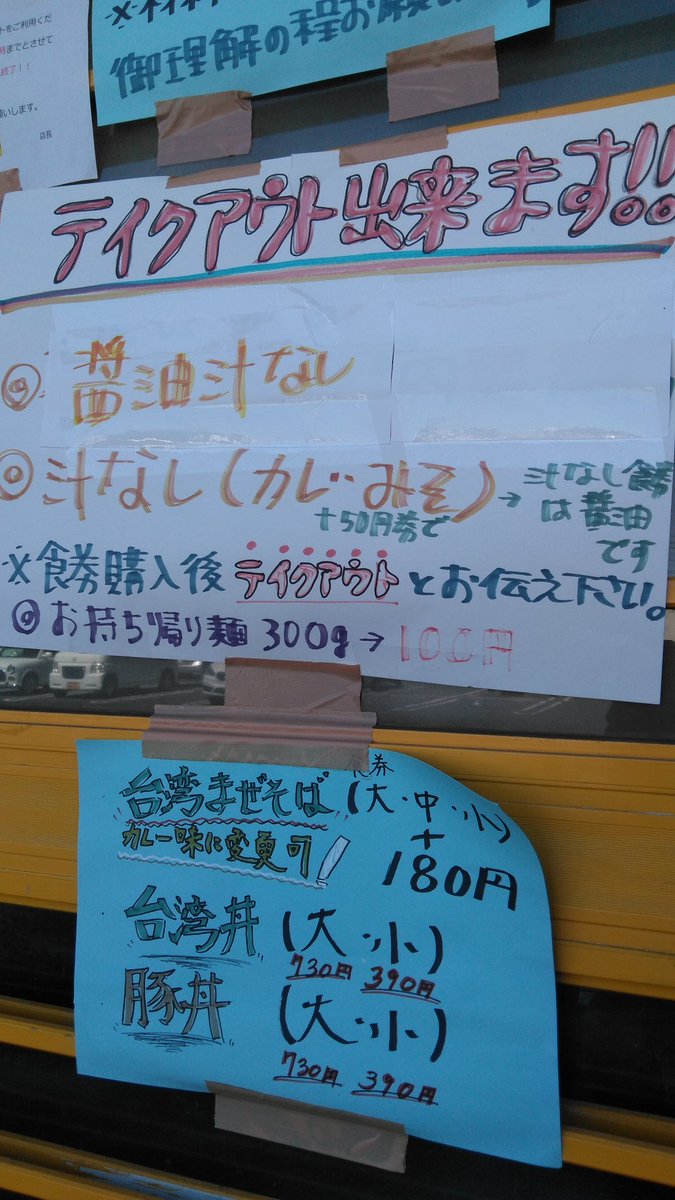 トをご利用くだ
時までとさせて
終了！！
願いします。
店長
御理解の程お願
テイクアウト出来ます!!
◎醤油汁なし
◎汁なし(カレー・みそ)→
+50円券で
汁なし食券
は醤油
です
※食券購入後テイクアウトとお伝え下さい。
◎お持ち帰り麺 300g→100円
台湾まぜそば(大・中・小)
カレー味に変更可!
+
180円
台湾丼(大・小)
730円 390円
豚丼(大・小)
730円 390円